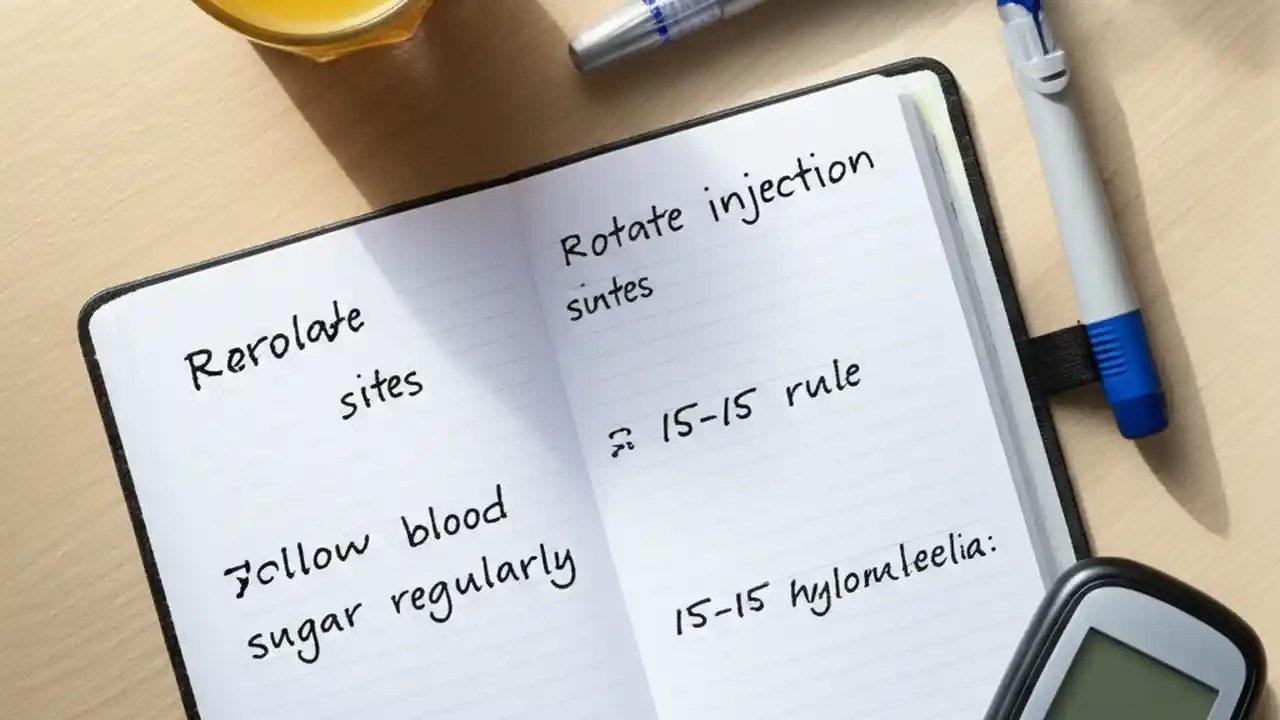 Rerolate
sites
Follow blood
sugar regularly
Rotate injection
sintes
15-15 rule
15-15 hylomleelia: